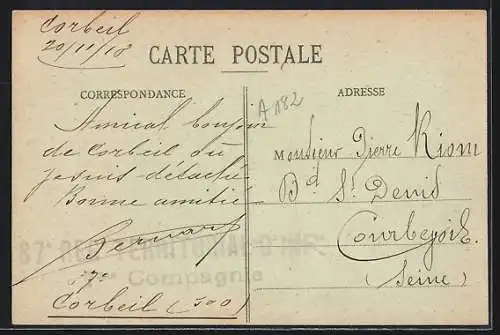 Corbeil
20/11/18
CARTE POSTALE
CORRESPONDANCE
ADRESSE
A 182
Amical bonjour
de Corbeil où
je suis détaché
Bonne amitié
Bernard
Monsieur Pierre Riom
Bd St Denis
Courbevoie
(Seine)
87e REGt TERRITORIAL D'INF
17e Compagnie
Corbeil (S&O)